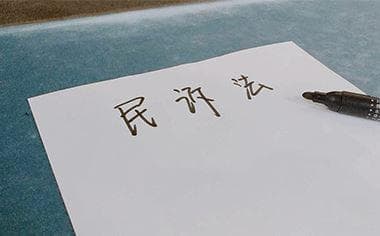 民诉法